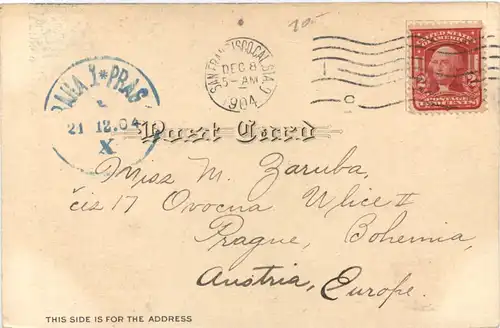 SAN FRANCISCO, CAL. STA. 1
DEC 8
5-AM
1904
UNITED STATES
OF AMERICA
2 2
POSTAGE
TWO CENTS
PRAHA 1*PRAG
21 12.04
X
Post Card
Miss M. Zaruba,
čis 17 Ovocna Ulice II
Prague, Bohemia,
Austria, Europe.
THIS SIDE IS FOR THE ADDRESS